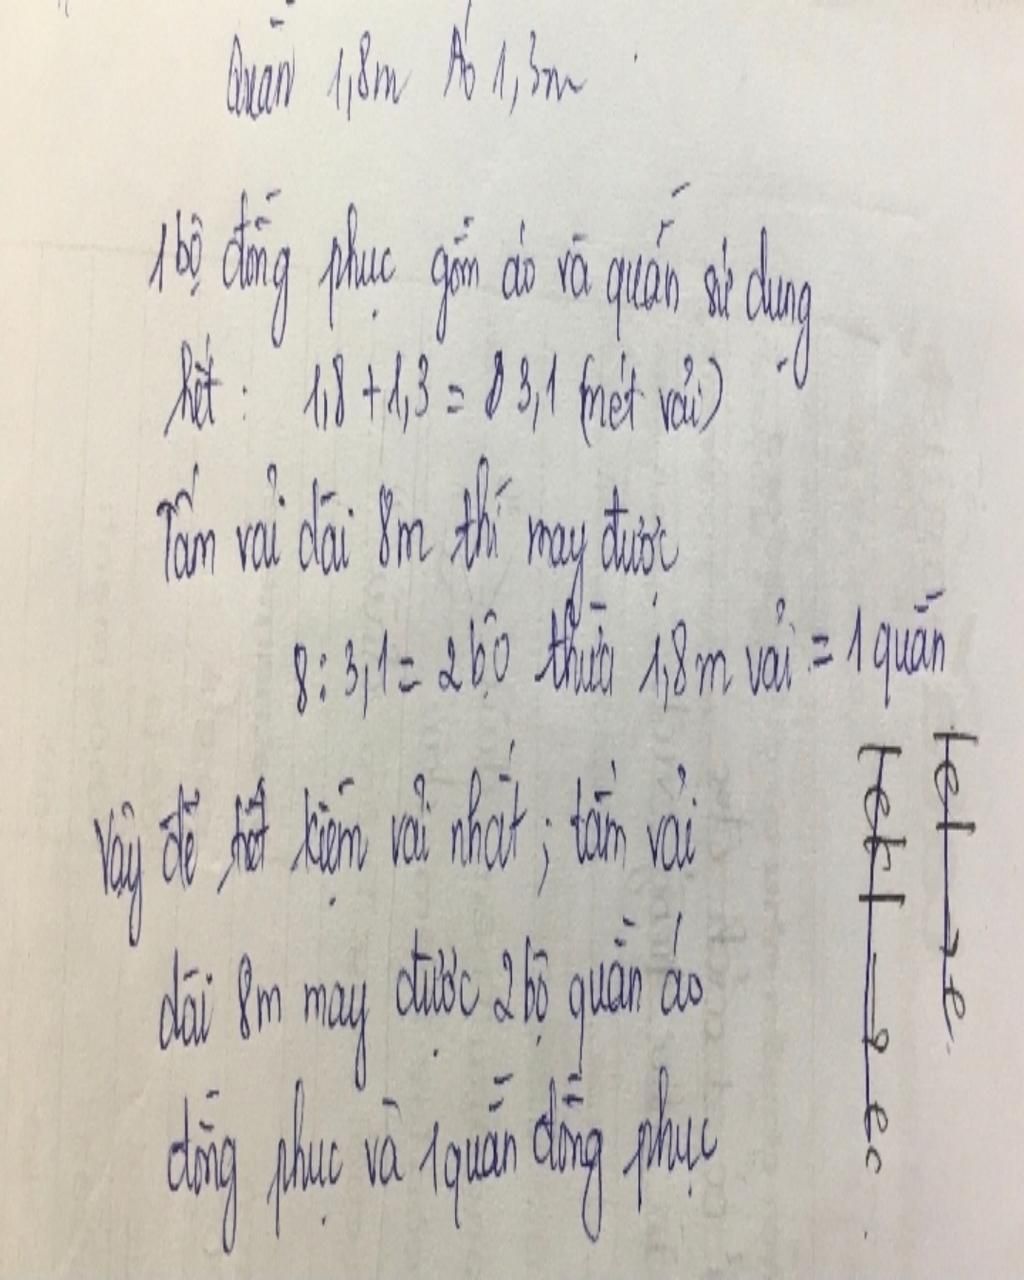 Quần 1,8m Áo 1,3m
1 bộ đồng phục gồm áo và quần sử dụng
hết: 1,8 + 1,3 = 3,1 (mét vải)
Tấm vải dài 8m thì may được
8 : 3,1 = 2 bộ thừa 1,8m vải = 1 quần
Vậy để tiết kiệm vải nhất ; tấm vải
dài 8m may được 2 bộ quần áo
đồng phục và 1 quần đồng phục